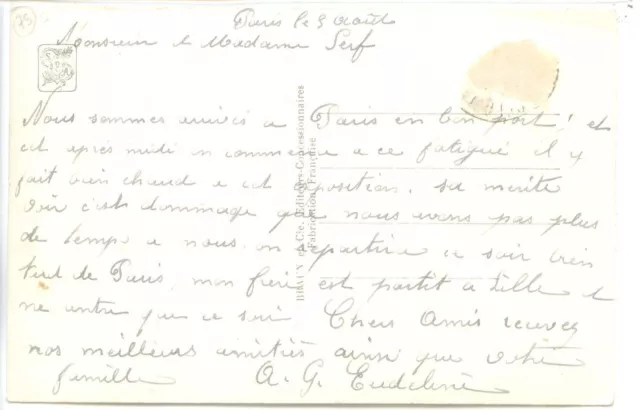 73
Paris le 9 août
Monsieur & Madame Serf
Nous sommes arrivés a Paris en bon port! et
cet après midi on commence a ce fatigué il y
fait bien chaud a cet exposition. sa mérite
voir c'est dommage que nous avons pas plus
de temps a nous. on repartira ce soir bien
tard de Paris, mon frère est partit a Lille &
ne rentre que ce soir Chers Amis recevez
nos meilleurs amitiés ainsi que votre
famille A. G. Eudeline
BRAUN et Cie, Editeurs-Concessionnaires
Fabrication Française